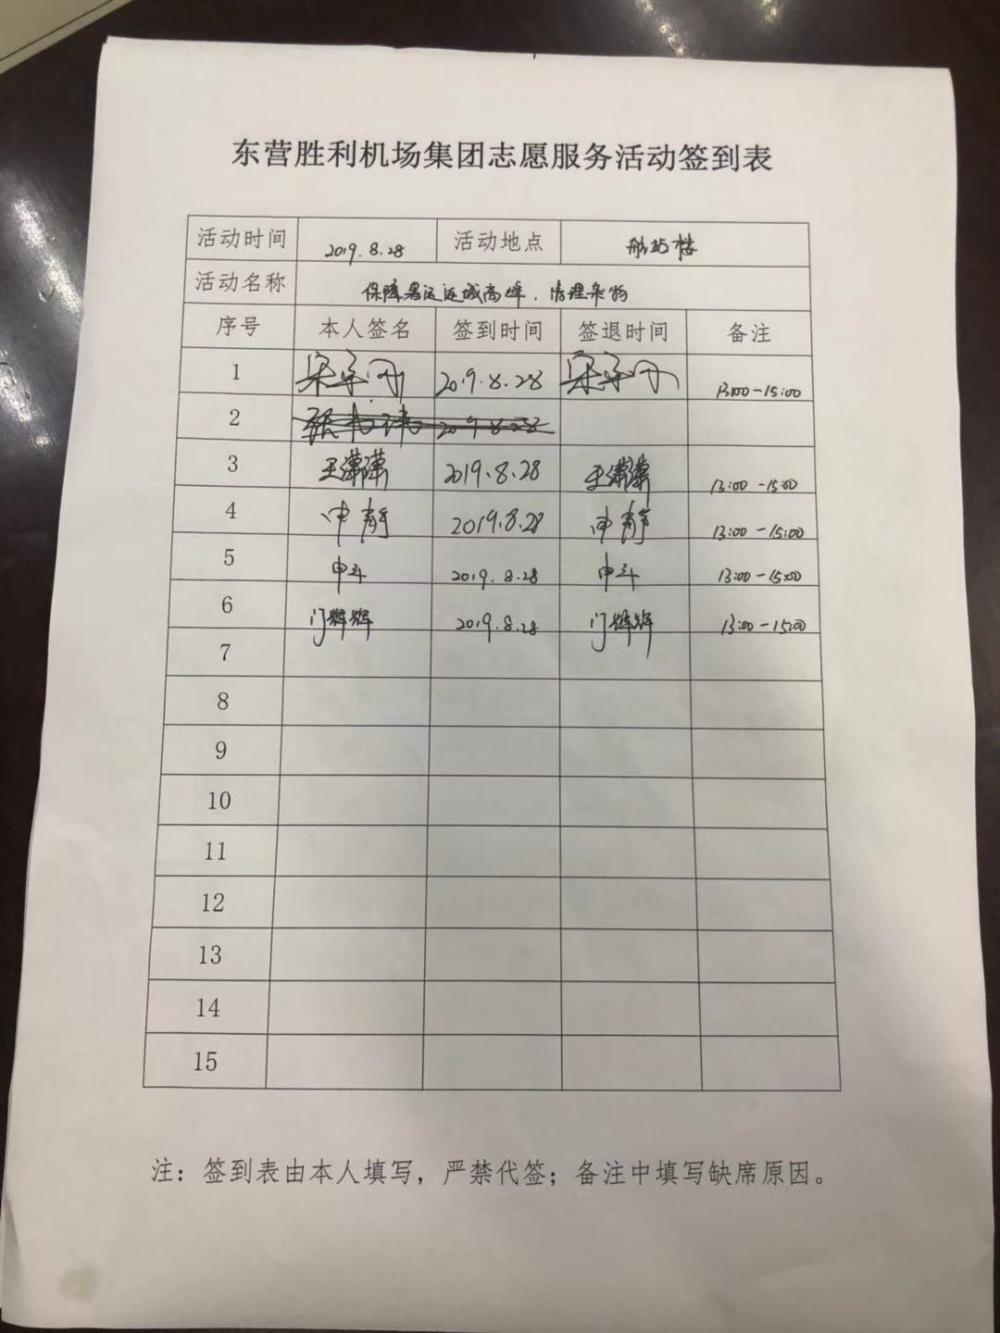 东营胜利机场集团志愿服务活动签到表
活动时间 2019.8.28 活动地点 航站楼
活动名称 保障暑运返城高峰,清理杂物
序号 本人签名 签到时间 签退时间 备注
1 2019.8.28 13:00-15:00
2 2019.8.28
3 王潇潇 2019.8.28 王潇潇 13:00-15:00
4 申静 2019.8.28 申静 13:00-15:00
5 申斗 2019.8.28 申斗 13:00-15:00
6 门辉辉 2019.8.28 门辉辉 13:00-15:00
7
8
9
10
11
12
13
14
15
注：签到表由本人填写，严禁代签；备注中填写缺席原因。